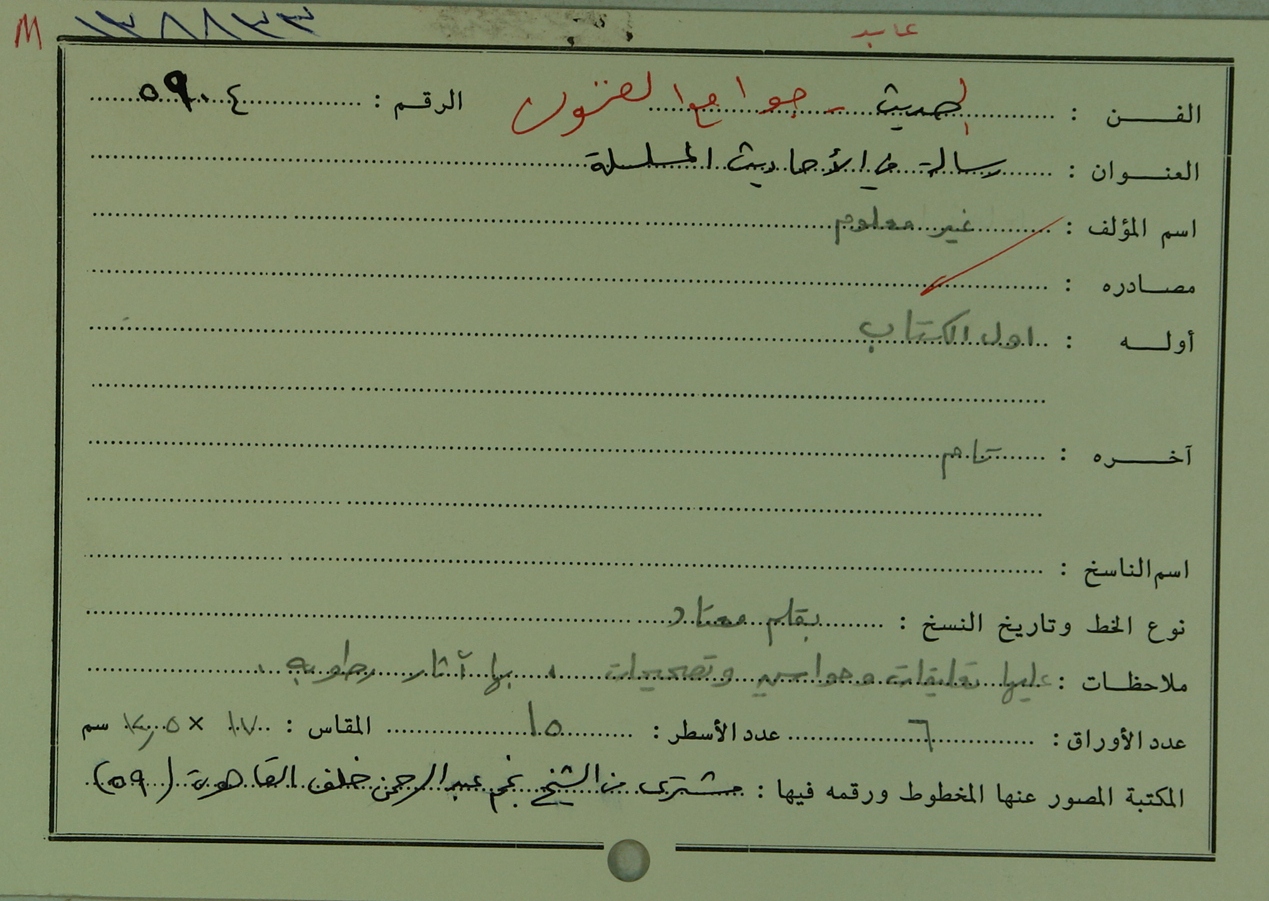 M ١٣٨٨٣٣ عابد
الفن : الحديث - جوامع الفنون الرقم : ٥٩٠٤
العنوان : رسالة في الأحاديث المسلسلة
اسم المؤلف : غير معلوم
مصادره :
أوله : اول الكتاب
آخره : تام
اسم الناسخ :
نوع الخط وتاريخ النسخ : بقلم معتاد
ملاحظات : عليها تعليقات وحواشي وتصحيحات ، بها آثار رطوبه .
عدد الأوراق : ٦ عدد الأسطر : ١٥ المقاس : ١٧ × سم
المكتبة المصور عنها المخطوط ورقمه فيها : مشترى من الشيخ نجم عبد الرحمن خلف القاهرة (٥٩)